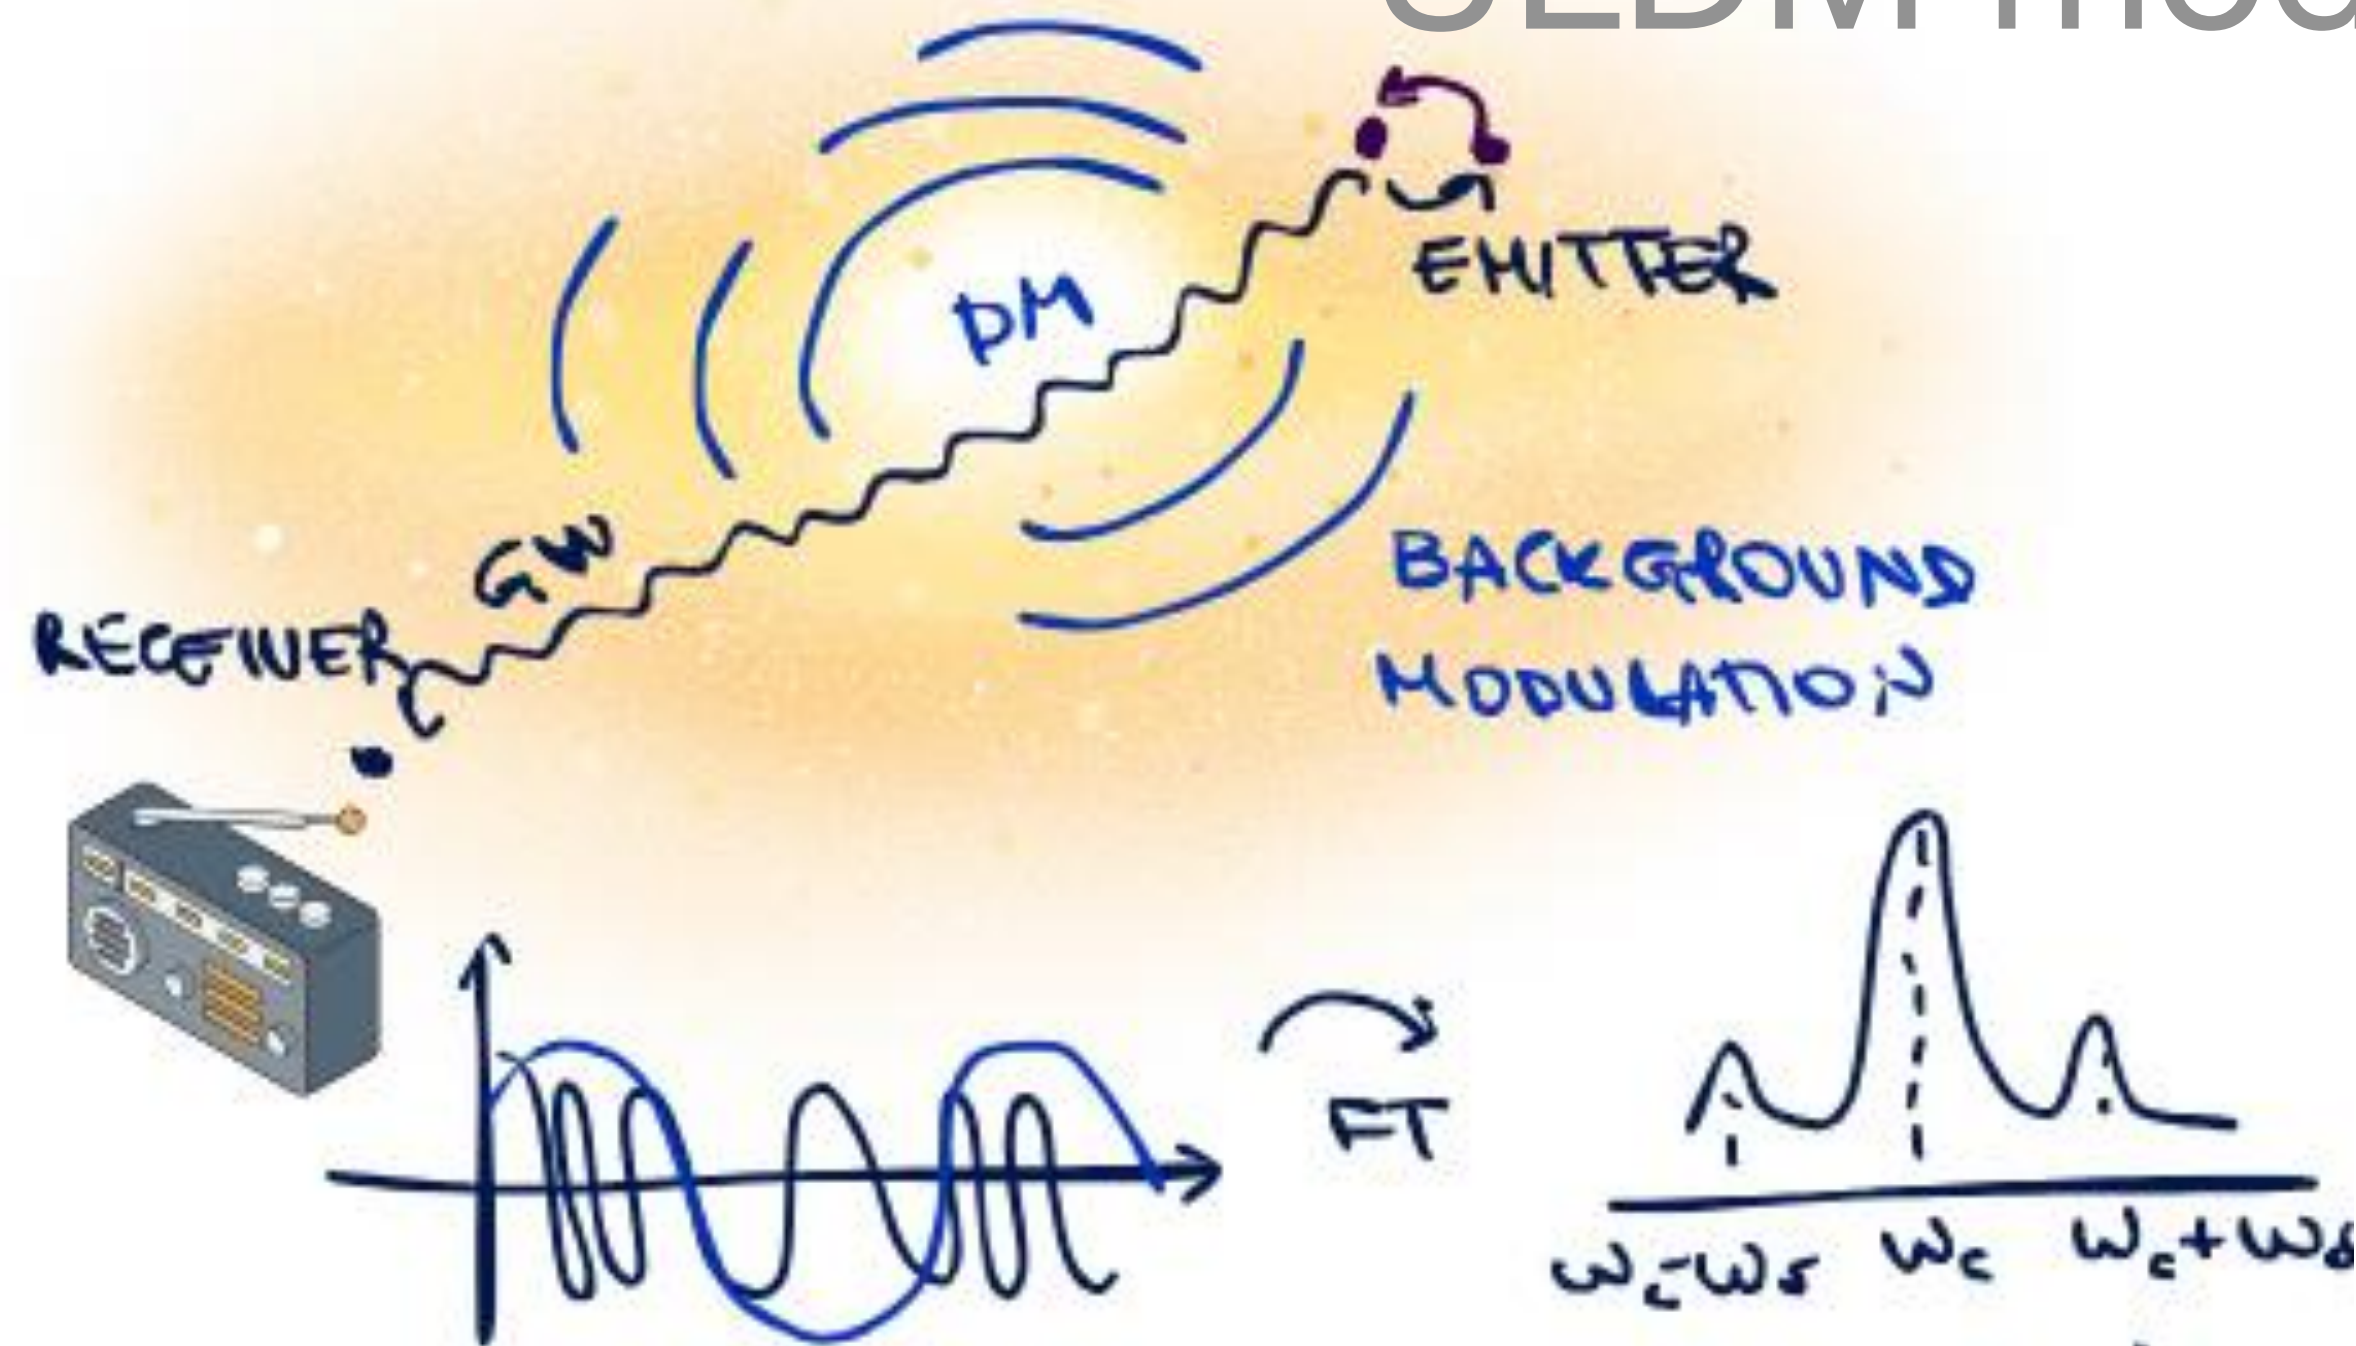 DM
EMITTER
GW
RECEIVER
BACKGROUND
MODULATION
FT
ω_c-ω_δ ω_c ω_c+ω_δ